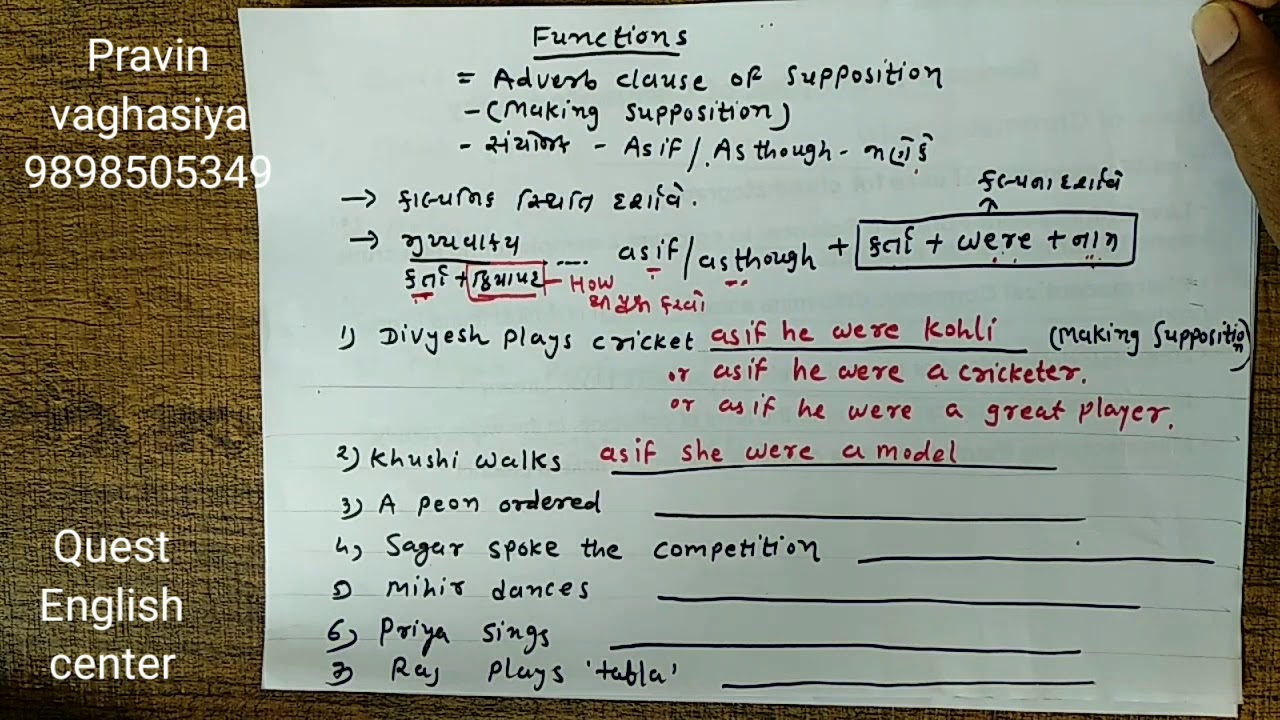 Pravin
vaghasiya
9898505349
Functions
= Adverb clause of supposition
- (Making supposition)
- સંયોજક - As if / As though - જાણે કે
→ કાલ્પનિક સ્થિતિ દર્શાવે.
કલ્પના દર્શાવે
→ મુખ્યવાક્ય .... as if / as though + કર્તા + were + નામ
કર્તા + ક્રિયાપદ - How
પ્રશ્ન કરવો
1) Divyesh plays cricket as if he were Kohli (Making Supposition)
or as if he were a cricketer.
or as if he were a great player.
2) Khushi walks as if she were a model
3) A peon ordered
4) Sagar spoke the competition
5) Mihir dances
6) Priya sings
7) Raj plays 'tabla'
Quest
English
center